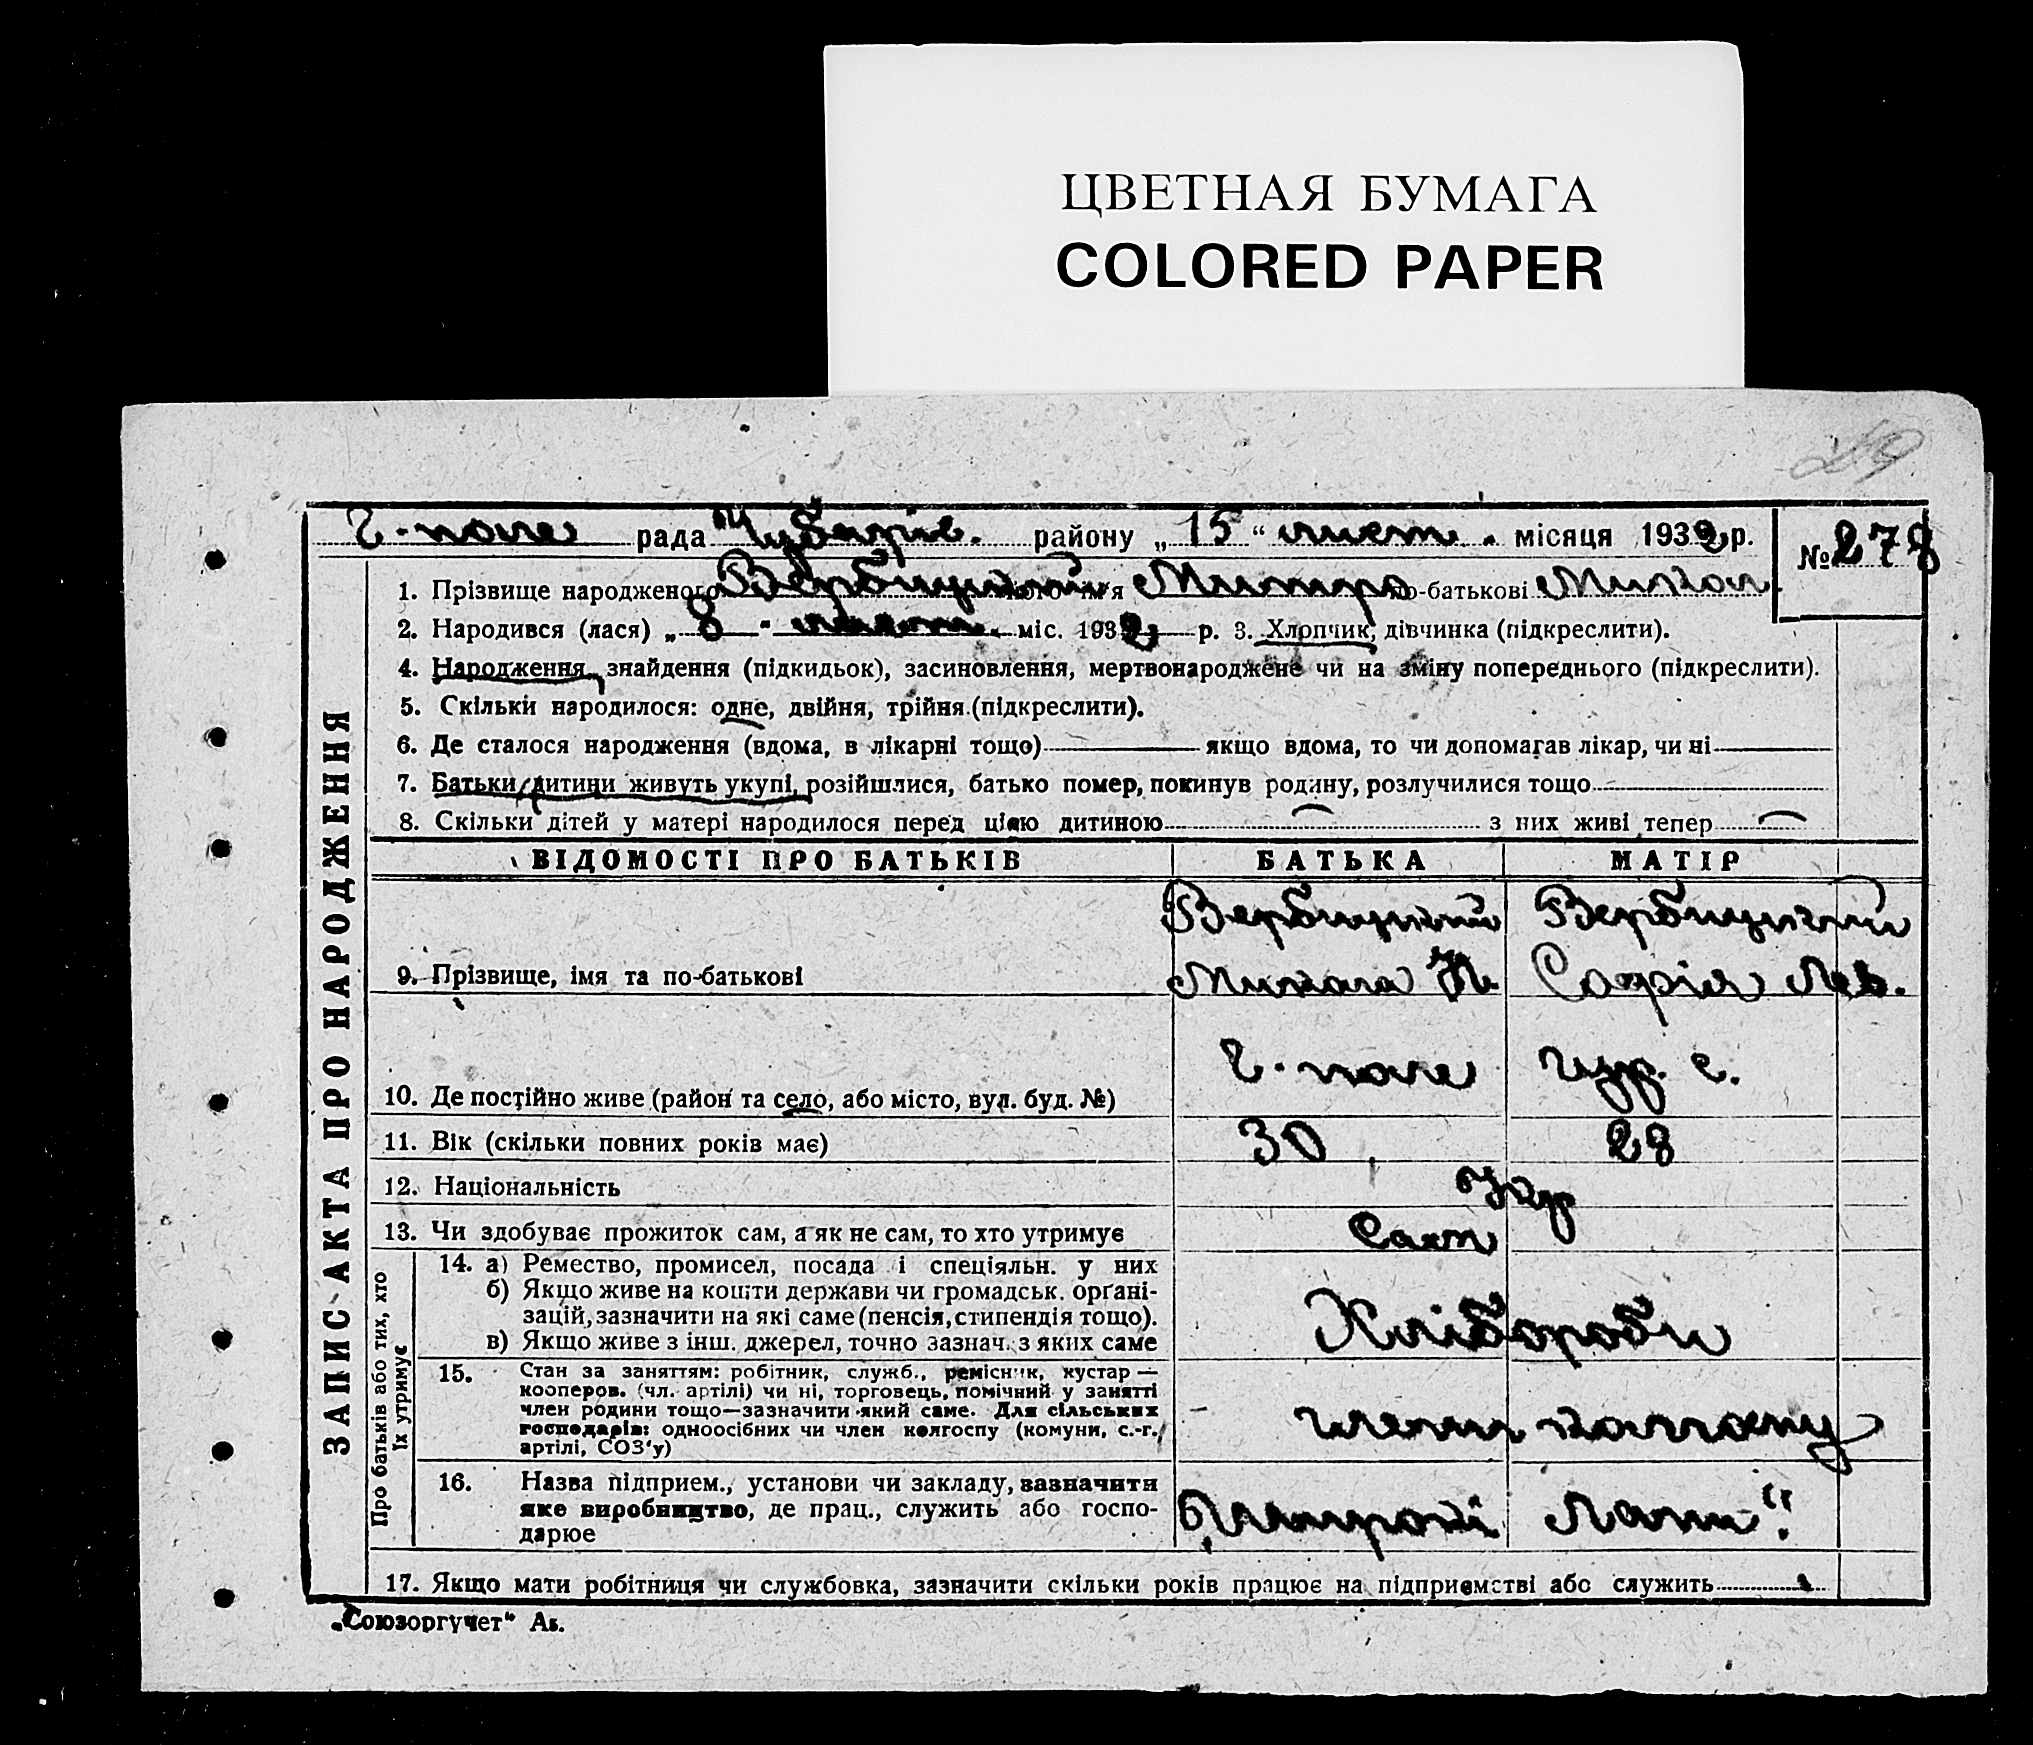 ЦВЕТНАЯ БУМАГА
COLORED PAPER
Г-поле рада Чубарів. району „15“ лист. місяця 1932 р. № 278
ЗАПИС АКТА ПРО НАРОДЖЕННЯ
1. Прізвище народженого Вербицький його ім'я Митро по-батькові Микол
2. Народився (лася) „8“ лист. міс. 1932 р. 3. Хлопчик, дівчинка (підкреслити).
4. Народження, знайдення (підкидьок), засиновлення, мертвонароджене чи на зміну попереднього (підкреслити).
5. Скільки народилося: одне, двійня, трійня (підкреслити).
6. Де сталося народження (вдома, в лікарні тощо) якщо вдома, то чи допомагав лікар, чи ні
7. Батьки дитини живуть укупі, розійшлися, батько помер, покинув родину, розлучилися тощо
8. Скільки дітей у матері народилося перед цією дитиною з них живі тепер
ВІДОМОСТІ ПРО БАТЬКІВ БАТЬКА МАТІР
Вербицький Вербицький
9. Прізвище, імя та по-батькові Микола Софія Лев.
10. Де постійно живе (район та село, або місто, вул. буд. №) Г-поле с.
11. Вік (скільки повних років має) 30 28
12. Національність Укр
13. Чи здобуває прожиток сам, а як не сам, то хто утримує Сам
Про батьків або тих, хто їх утримує
14. а) Ремество, промисел, посада і спеціяльн. у них
б) Якщо живе на кошти держави чи громадськ. орґані-
зацій, зазначити на які саме (пенсія, стипендія тощо).
в) Якщо живе з інш. джерел, точно зазнач. з яких саме Хлібороби
15. Стан за заняттям: робітник, служб., ремісник, кустар —
кооперов. (чл. артілі) чи ні, торговець, помічний у занятті
член родини тощо—зазначити який саме. Для сільських
господарів: одноосібних чи член колгоспу (комуни, с.-г.
артілі, СОЗ'у) члени
16. Назва підприєм., установи чи закладу, зазначити
яке виробництво, де прац., служить або госпо-
дарює
17. Якщо мати робітниця чи службовка, зазначити скільки років працює на підприємстві або служить
„Союзоргучет“ Ав.